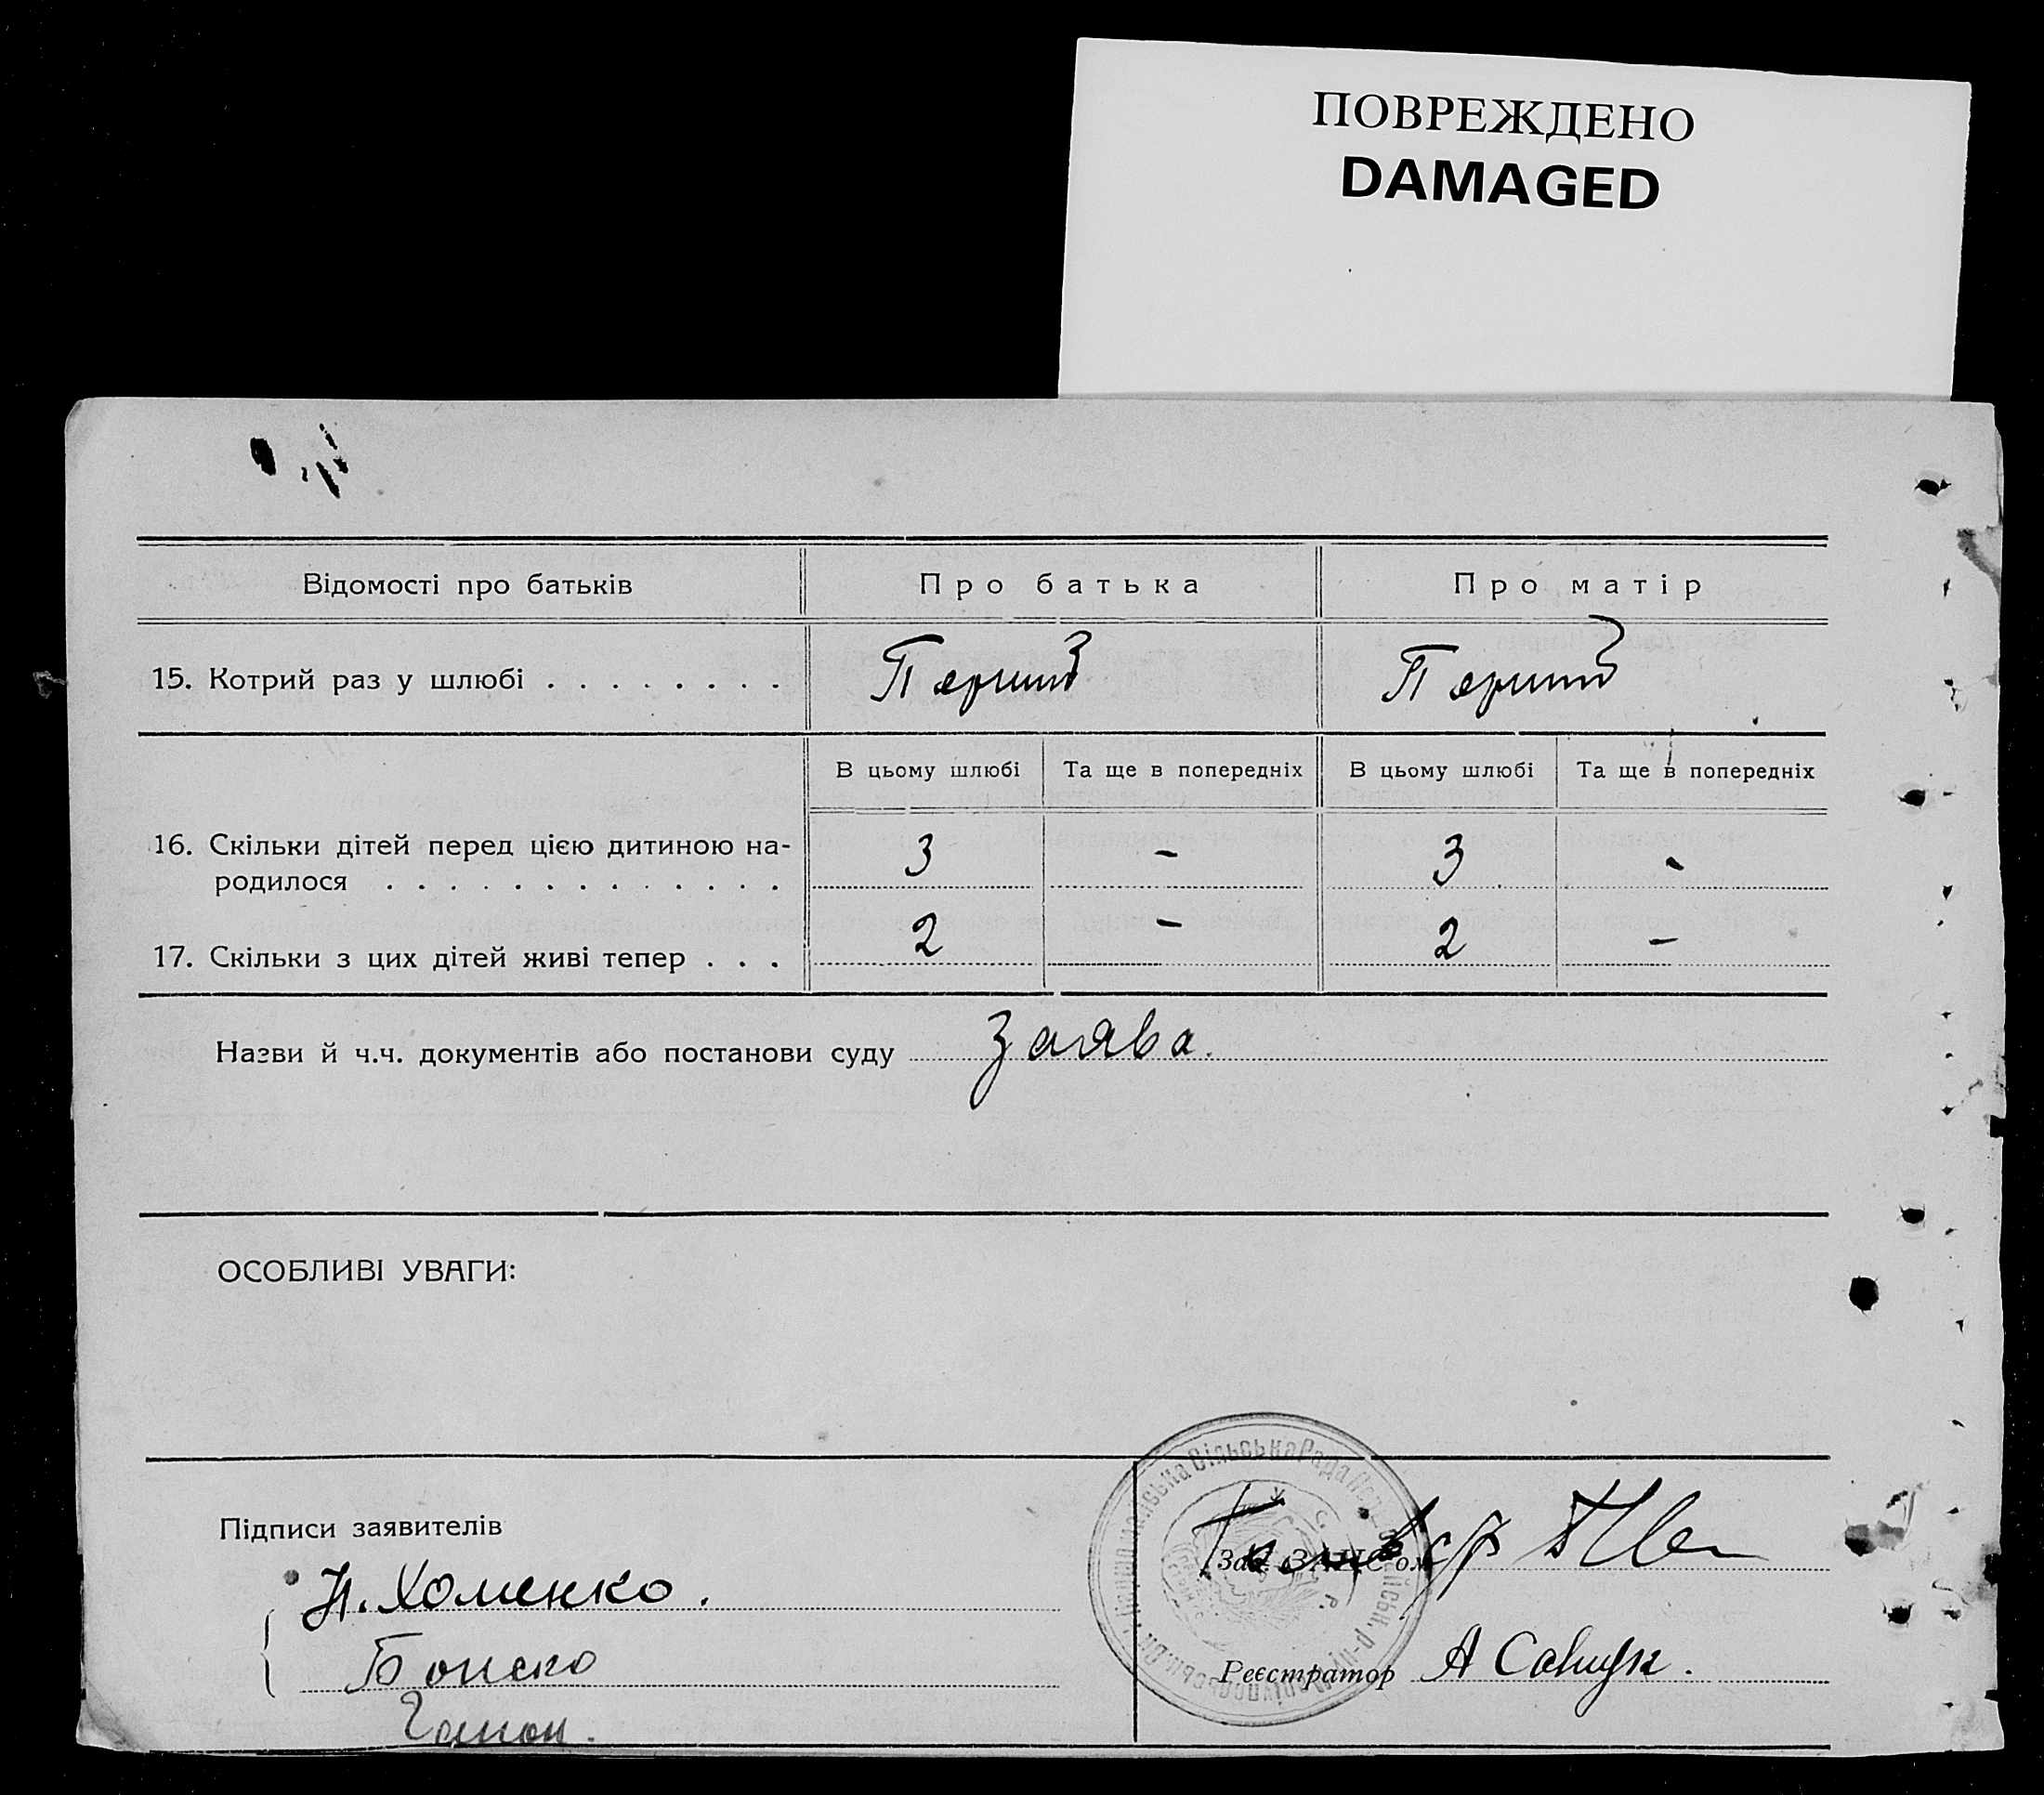 ПОВРЕЖДЕНО
DAMAGED
Відомості про батьків
Про батька
Про матір
15. Котрий раз у шлюбі . . . . . . . .
Перший
Перший
В цьому шлюбі
Та ще в попередніх
В цьому шлюбі
Та ще в попередніх
16. Скільки дітей перед цією дитиною на-
родилося . . . . . . . . . . . . .
3
-
3
-
17. Скільки з цих дітей живі тепер . . .
2
-
2
-
Назви й ч.ч. документів або постанови суду
Заява.
ОСОБЛИВІ УВАГИ:
Підписи заявителів
Сільська Рада
Зав. ЗАНС'ом
Н. Хоменко.
Реєстратор А